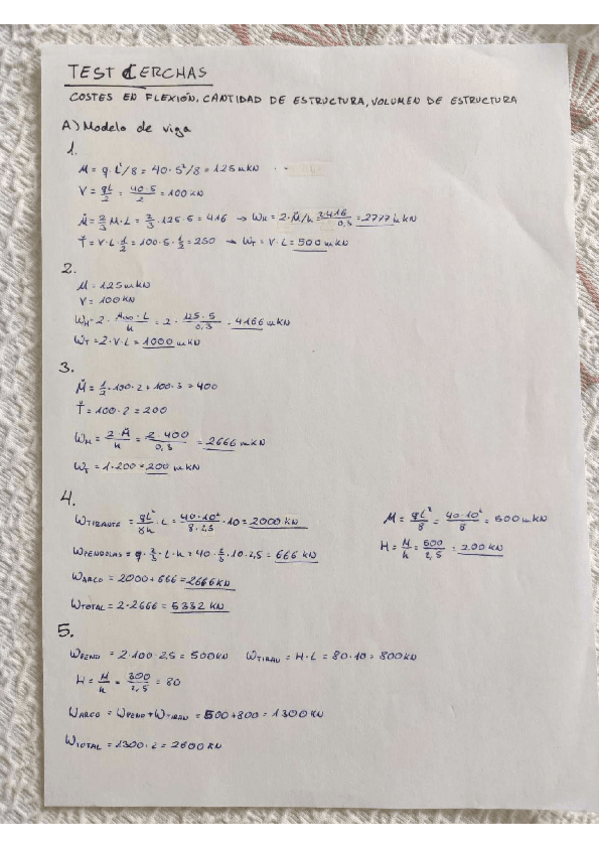 TEST CERCHAS
COSTES EN FLEXIÓN, CANTIDAD DE ESTRUCTURA, VOLUMEN DE ESTRUCTURA
A) Modelo de viga
1.
M = q·L²/8 = 40·5²/8 = 125 mkN
V = qL/2 = 40·5/2 = 100 kN
M̈ = 2/3 M·L = 2/3·125·5 = 416 → WM = 2·M̈/h = 2·416/0,3 = 2777 mkN
T̈ = V·L·1/2 = 100·5·1/2 = 250 → WT = V·L = 500 mkN
2.
M = 125 mkN
V = 100 kN
WM = 2· L/h = 2· 125·5/0,3 = 4166 mkN
WT = 2·V·L = 1000 mkN
3.
M̈ = 1/2·100·2 + 100·3 = 400
T̈ = 100·2 = 200
WM = 2·M̈/h = 2·400/0,3 = 2666 mkN
WT = 1·200 = 200 mkN
4.
WTIRANTE = qL²/8h · L = 40·10²/8·2,5 ·10 = 2000 kN
M = qL²/8 = 40·10²/8 = 500 mkN
WPENDOLAS = q· ·L·h = 40· ·10·2,5 = 666 kN
H = M/h = 500/2,5 = 200 kN
WARCO = 2000 + 666 = 2666 kN
WTOTAL = 2·2666 = 5332 kN
5.
WPEND = 2·100·2,5 = 500 kN WTIRAN = H·L = 80·10 = 800 kN
H = M/h = /2,5 = 80
WARCO = WPEND + WTIRAN = 500 + 800 = 1300 kN
WTOTAL = 1300·2 = 2600 kN